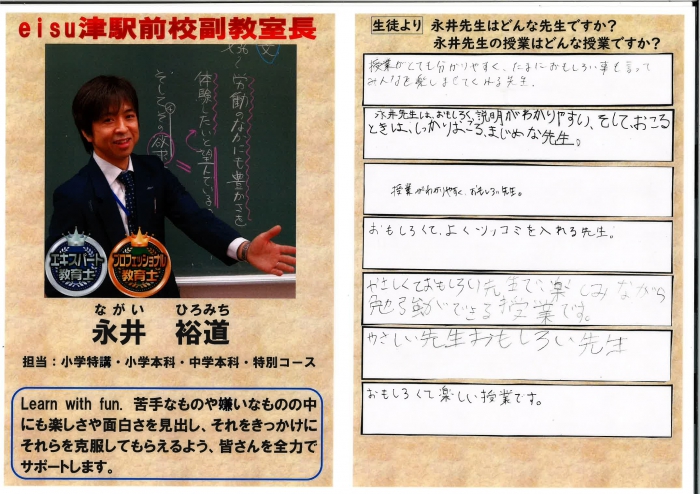 eisu津駅前校副教室長
労働のなかにも豊かさを
体験したいと望んでいる。
そしてその
エキスパート
教育士
プロフェッショナル
教育士
ながい ひろみち
永井 裕道
担当：小学特講・小学本科・中学本科・特別コース
Learn with fun. 苦手なものや嫌いなものの中
にも楽しさや面白さを見出し、それをきっかけに
それらを克服してもらえるよう、皆さんを全力で
サポートします。
生徒より 永井先生はどんな先生ですか？
永井先生の授業はどんな授業ですか？
授業がとても分かりやすく、たまにおもしろい事も言って
みんなを楽しませてくれる先生。
永井先生は、おもしろく、説明がわかりやすい、そして、おこる
ときは、しっかりおこる、まじめな先生。
授業がわかりやすく、おもしろい先生。
おもしろくて、よくツッコミを入れる先生。
やさしくておもしろい先生で、楽しみながら
勉強ができる授業です。
やさしい先生おもしろい先生
おもしろくて楽しい授業です。